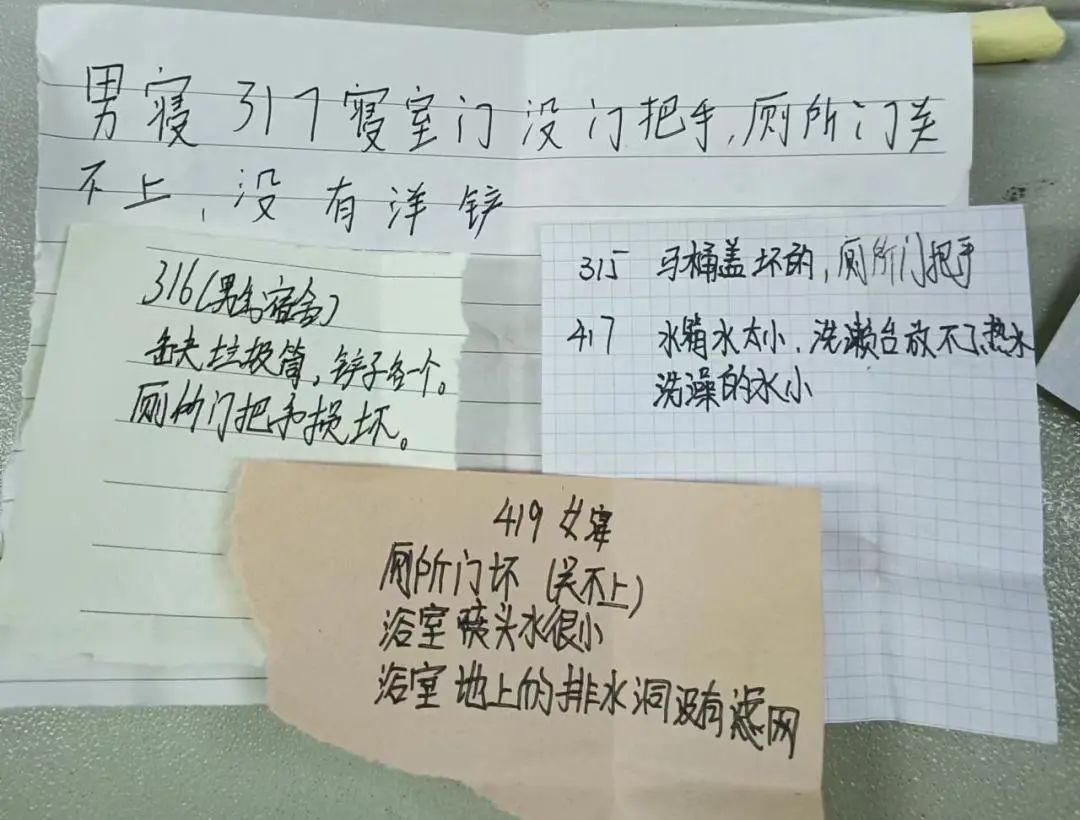 男寝 317寝室门没门把手,厕所门关
不上,没有洋铲
316(男生宿舍)
缺垃圾筒,铲子各一个。
厕所门把手损坏。
315 马桶盖坏的,厕所门把手
417 水箱水太小、洗漱台放不了热水
洗澡的水小
419 女寝
厕所门坏(关不上)
浴室喷头水很小
浴室地上的排水洞没有滤网